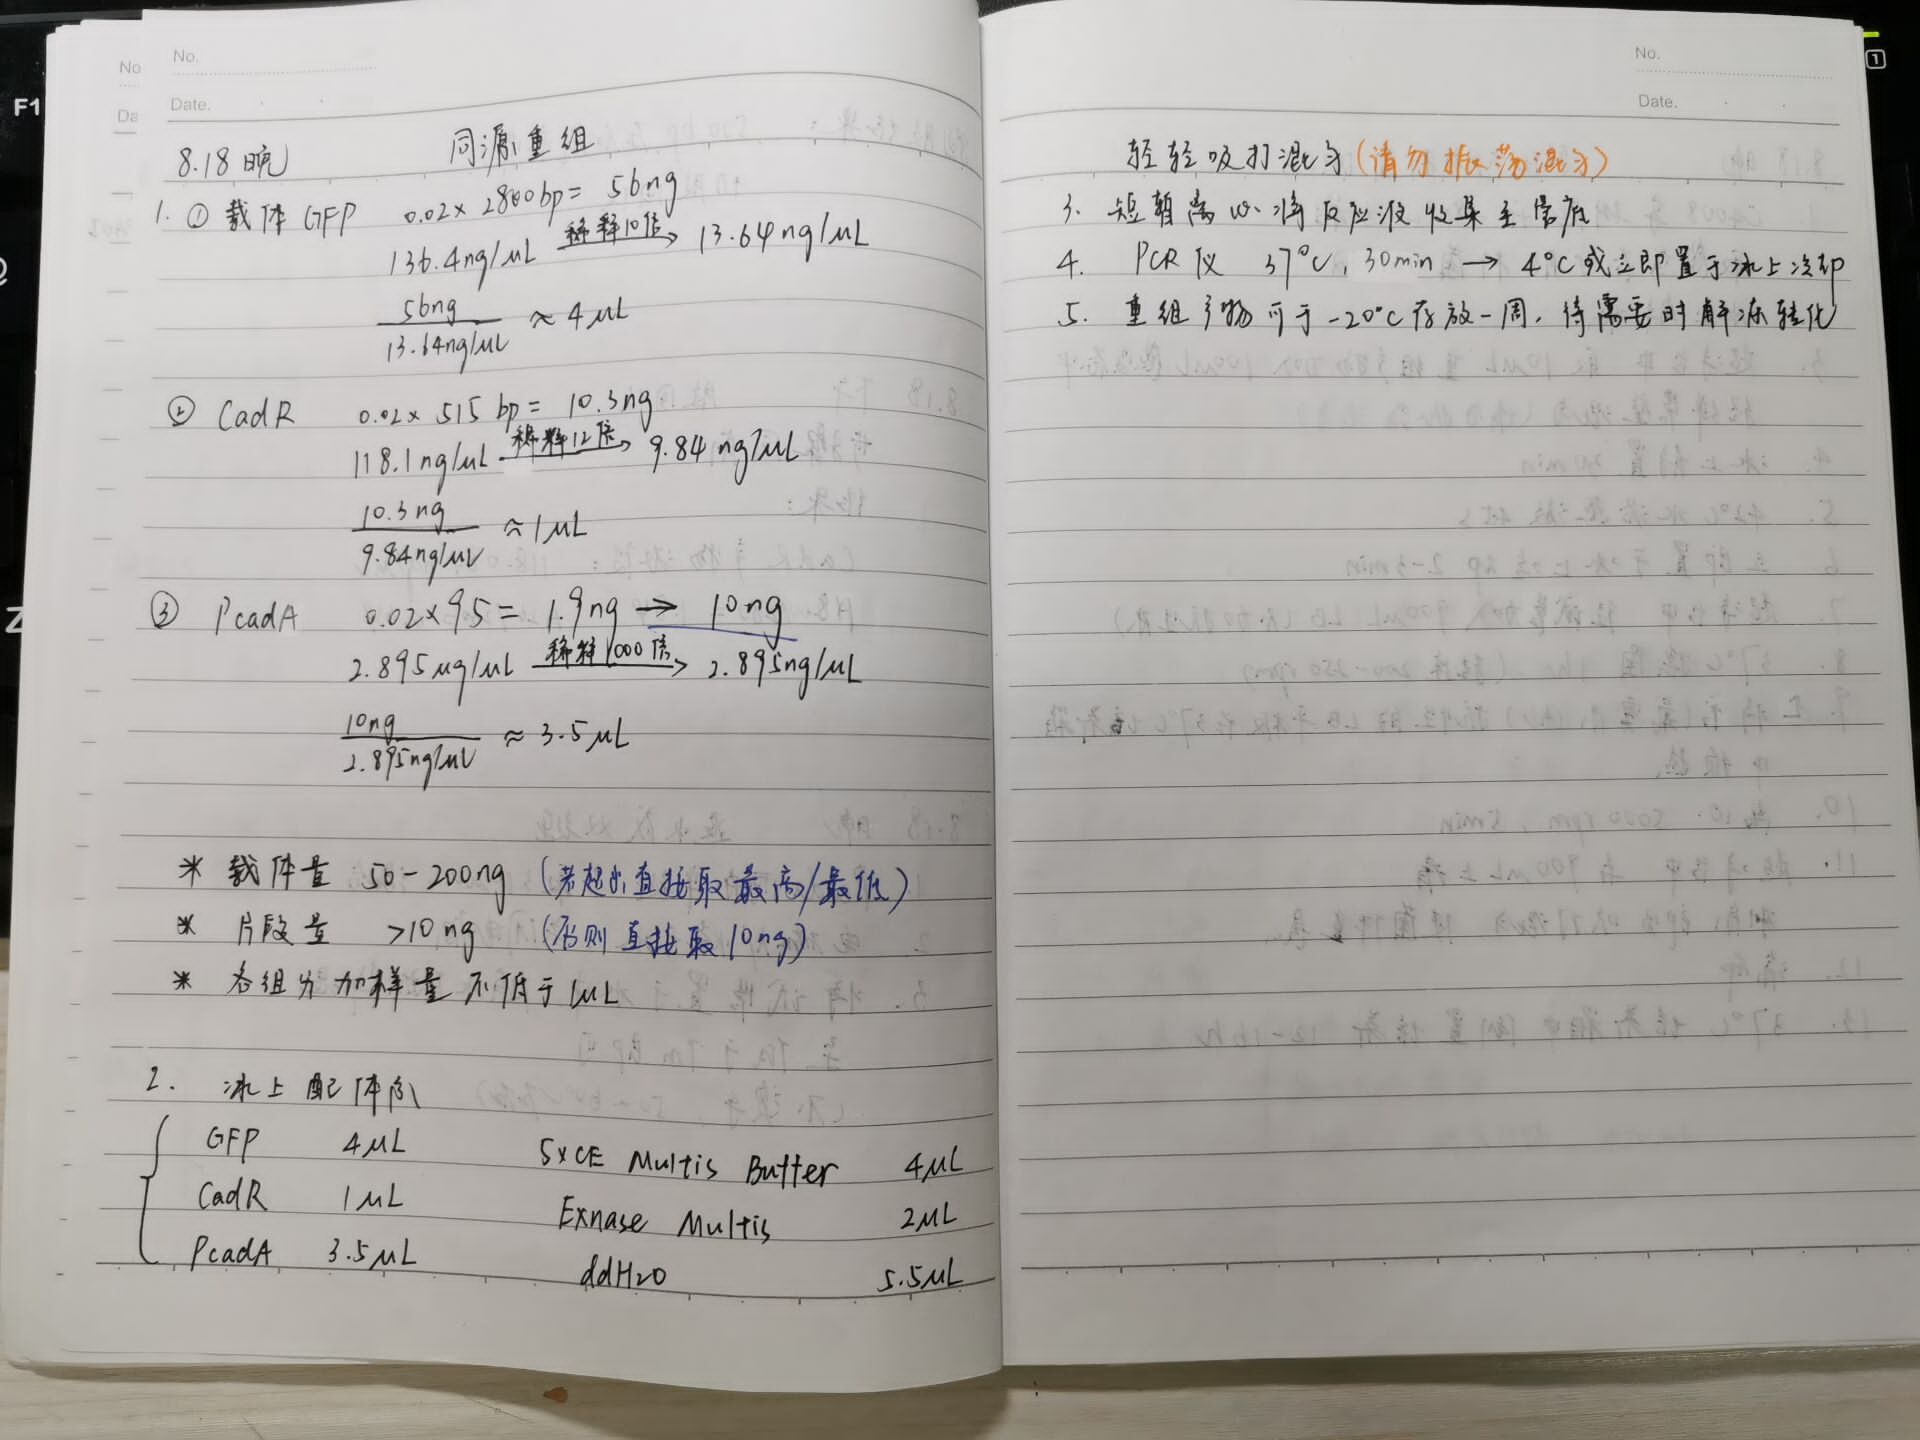 No.
Date.
8.18晚 同源重组
1. ① 载体GFP 0.02×2800bp= 56ng
136.4ng/μL 稀释10倍→ 13.64ng/μL
56ng/13.64ng/μL ≈ 4μL
② CadR 0.02×515bp= 10.3ng
118.1ng/μL 稀释12倍→ 9.84ng/μL
10.3ng/9.84ng/μL ≈1μL
③ PcadA 0.02×95= 1.9ng → 10ng
2.895μg/μL 稀释1000倍→ 2.895ng/μL
10ng/2.895ng/μL ≈ 3.5μL
* 载体量 50-200ng (若超出,直接取最高/最低)
* 片段量 >10ng (否则直接取10ng)
* 各组分加样量不低于1μL
2. 冰上配体系
GFP 4μL 5×CE Multis Buffer 4μL
CadR 1μL Exnase Multis 2μL
PcadA 3.5μL ddH2O 5.5μL
No.
Date.
轻轻吸打混匀(请勿振荡混匀)
3. 短暂离心.将反应液收集至管底
4. PCR仪 37℃, 30min → 4℃或立即置于冰上冷却
5. 重组产物可于-20℃存放一周,待需要时解冻转化
No
Da
F1
Z
1